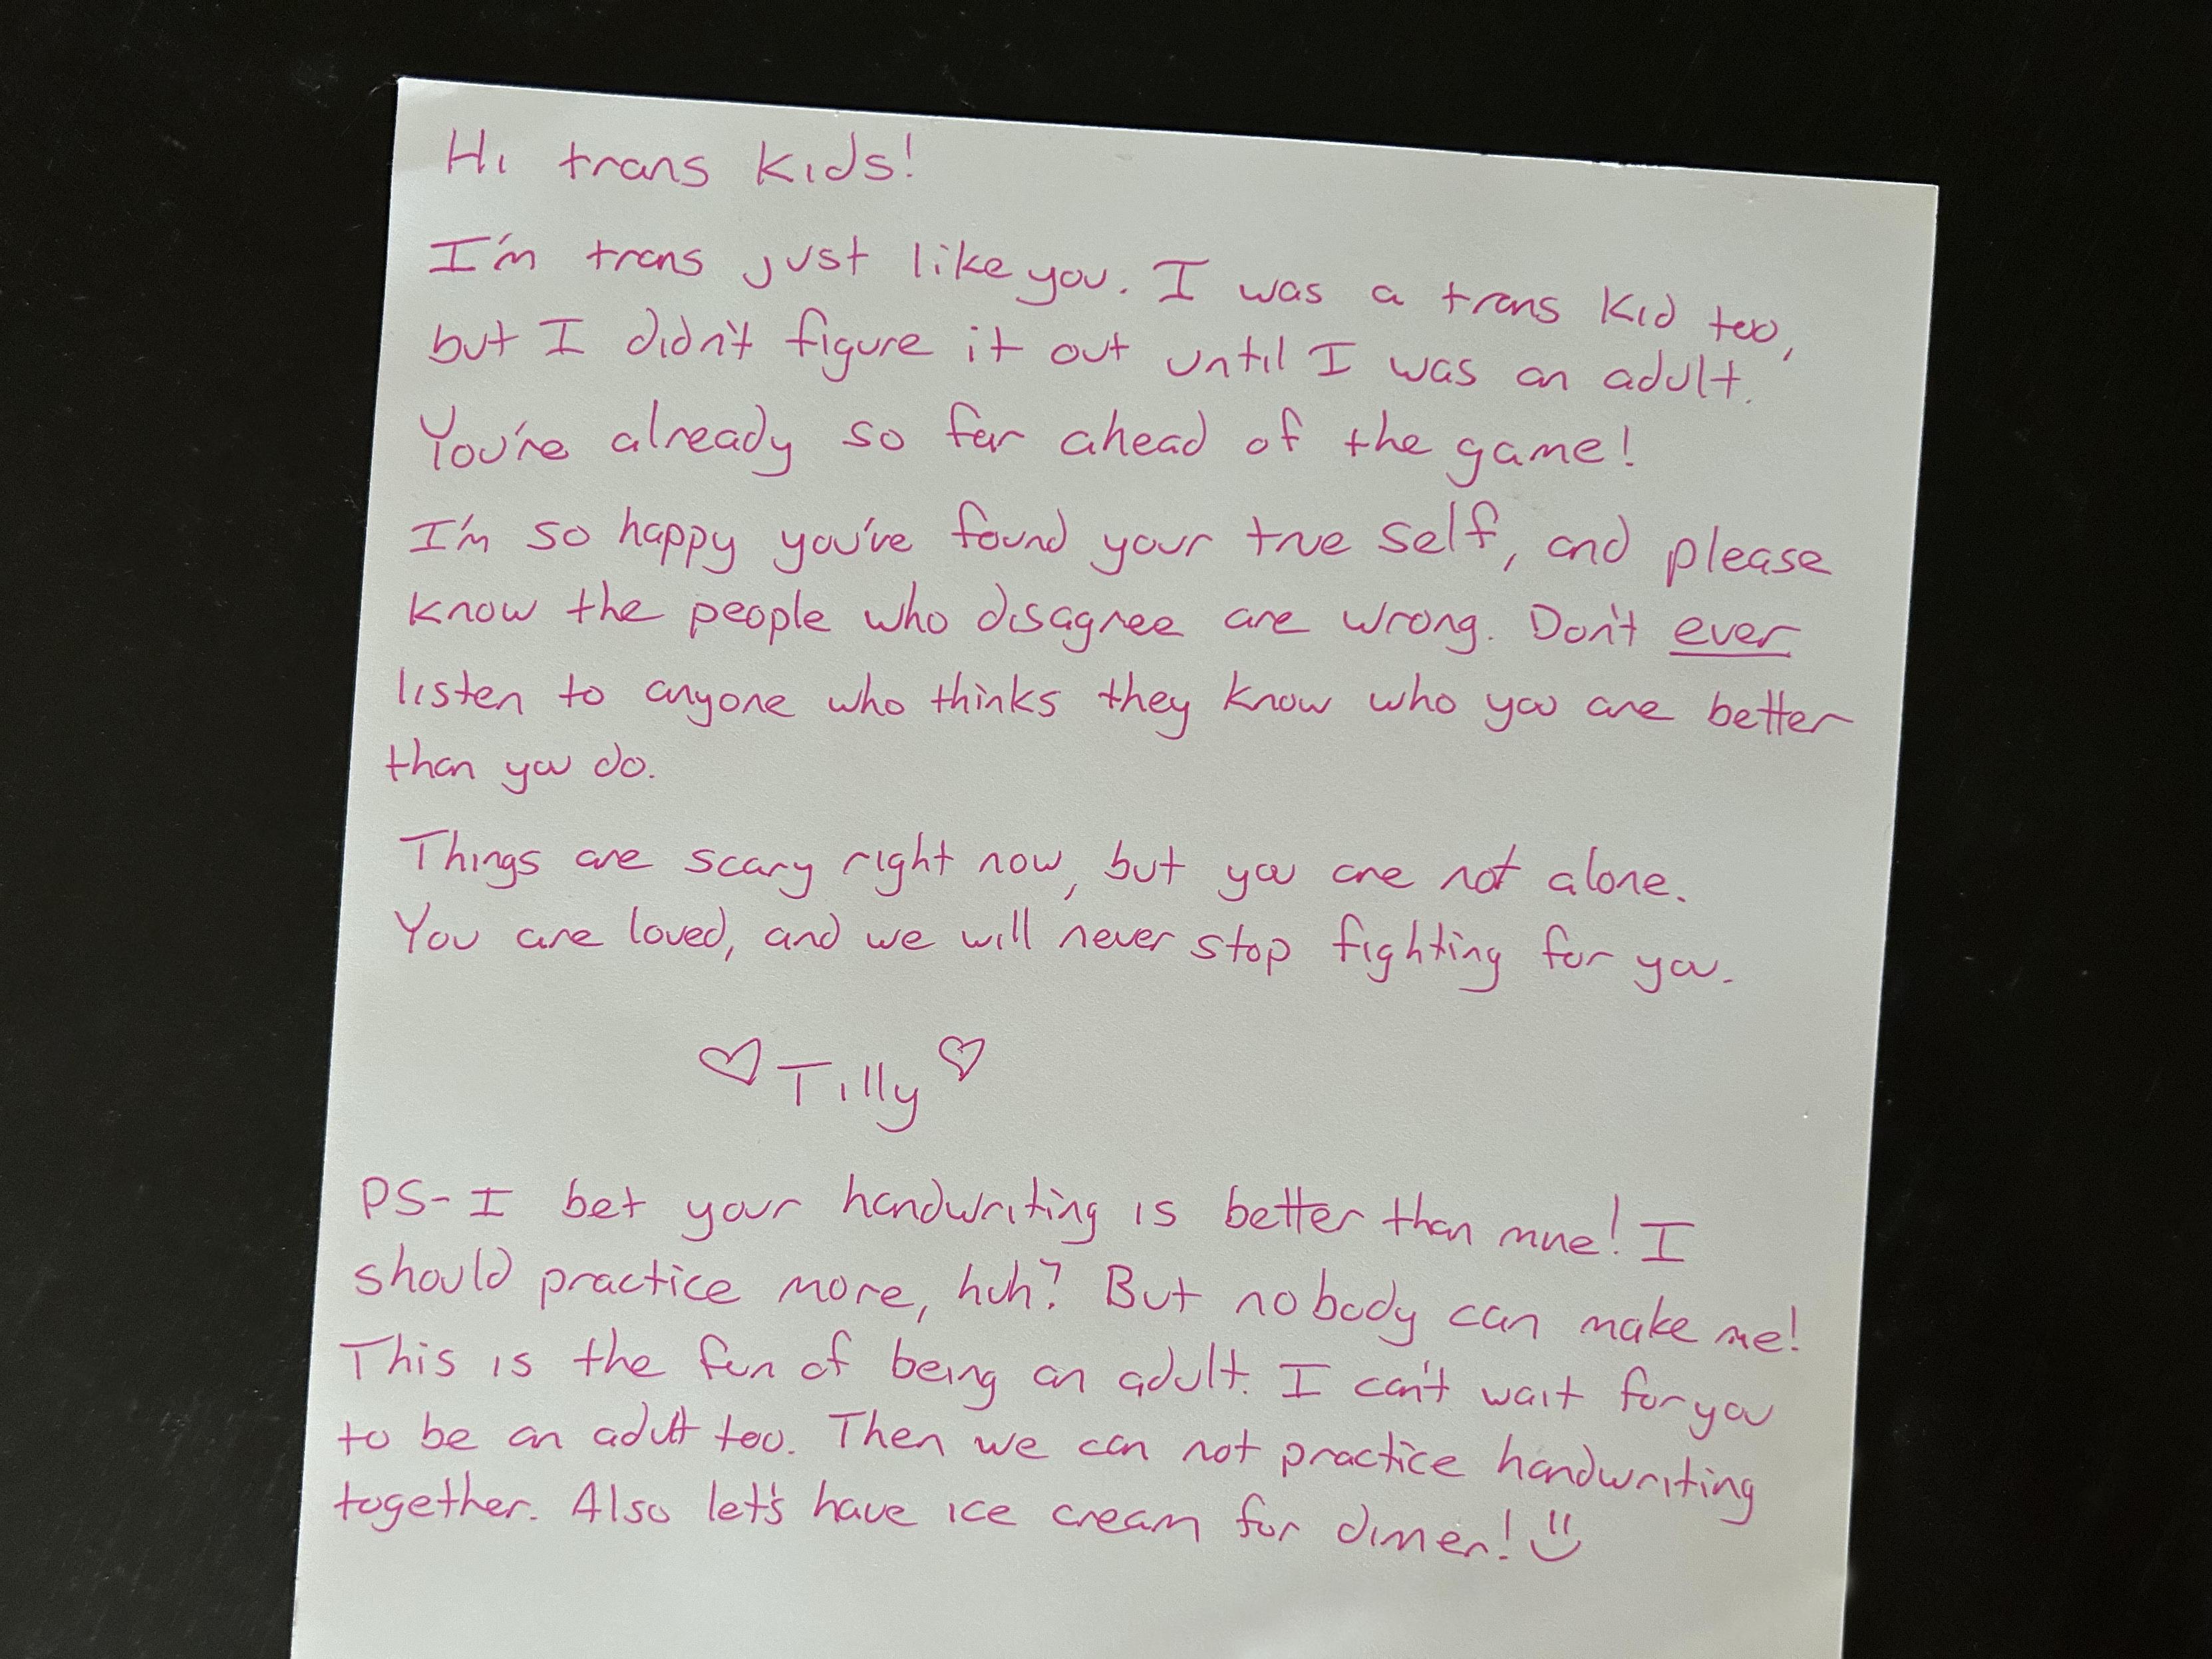 Hi trans kids!
I'm trans just like you. I was a trans kid too,
but I didn't figure it out until I was an adult.
You're already so far ahead of the game!
I'm so happy you've found your true self, and please
know the people who disagree are wrong. Don't ever
listen to anyone who thinks they know who you are better
than you do.
Things are scary right now, but you are not alone.
You are loved, and we will never stop fighting for you.
♡ Tilly ♡
PS- I bet your handwriting is better than mine! I
should practice more, huh? But nobody can make me!
This is the fun of being an adult. I can't wait for you
to be an adult too. Then we can not practice handwriting
together. Also let's have ice cream for dinner! :)